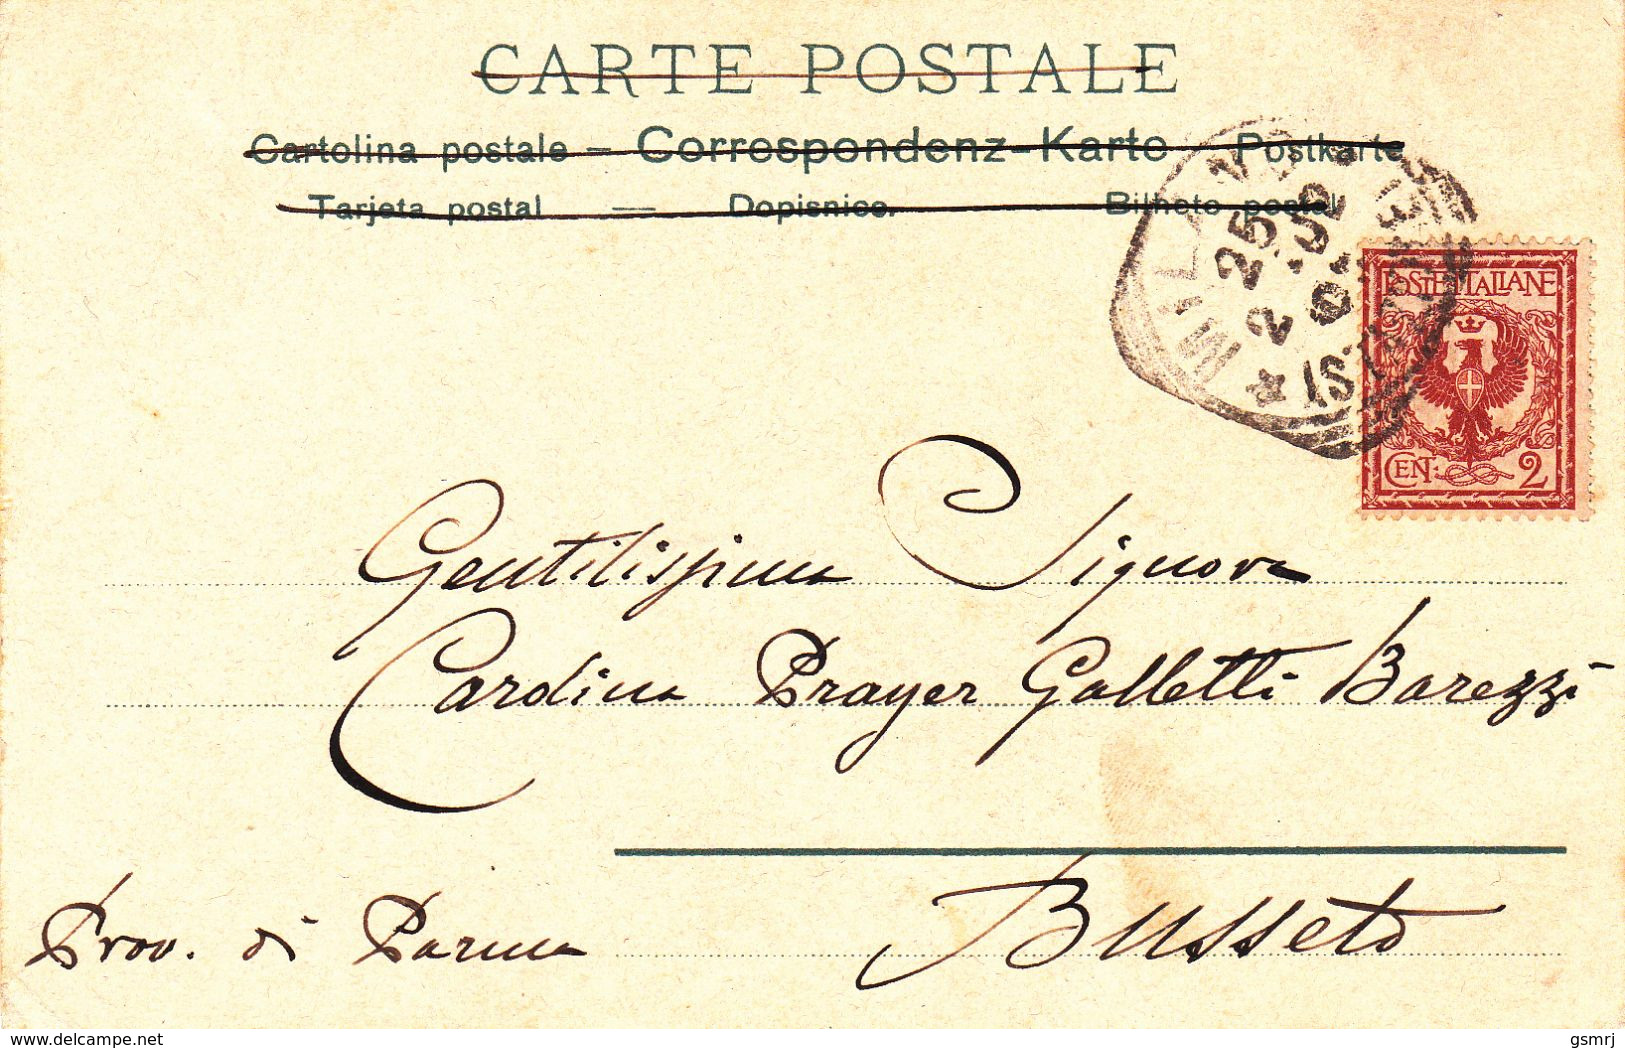 CARTE POSTALE
Cartolina postale – Correspondenz-Karte Postkarte
Tarjeta postal — Dopisnice. Bilhete postal
MILANO
2 25
POSTE ITALIANE
CENT: 2
Gentilissima Signora
Cardina Prayer Galletti Barezzi
Busseto
Prov. di Parma
www.delcampe.net
gsmrj